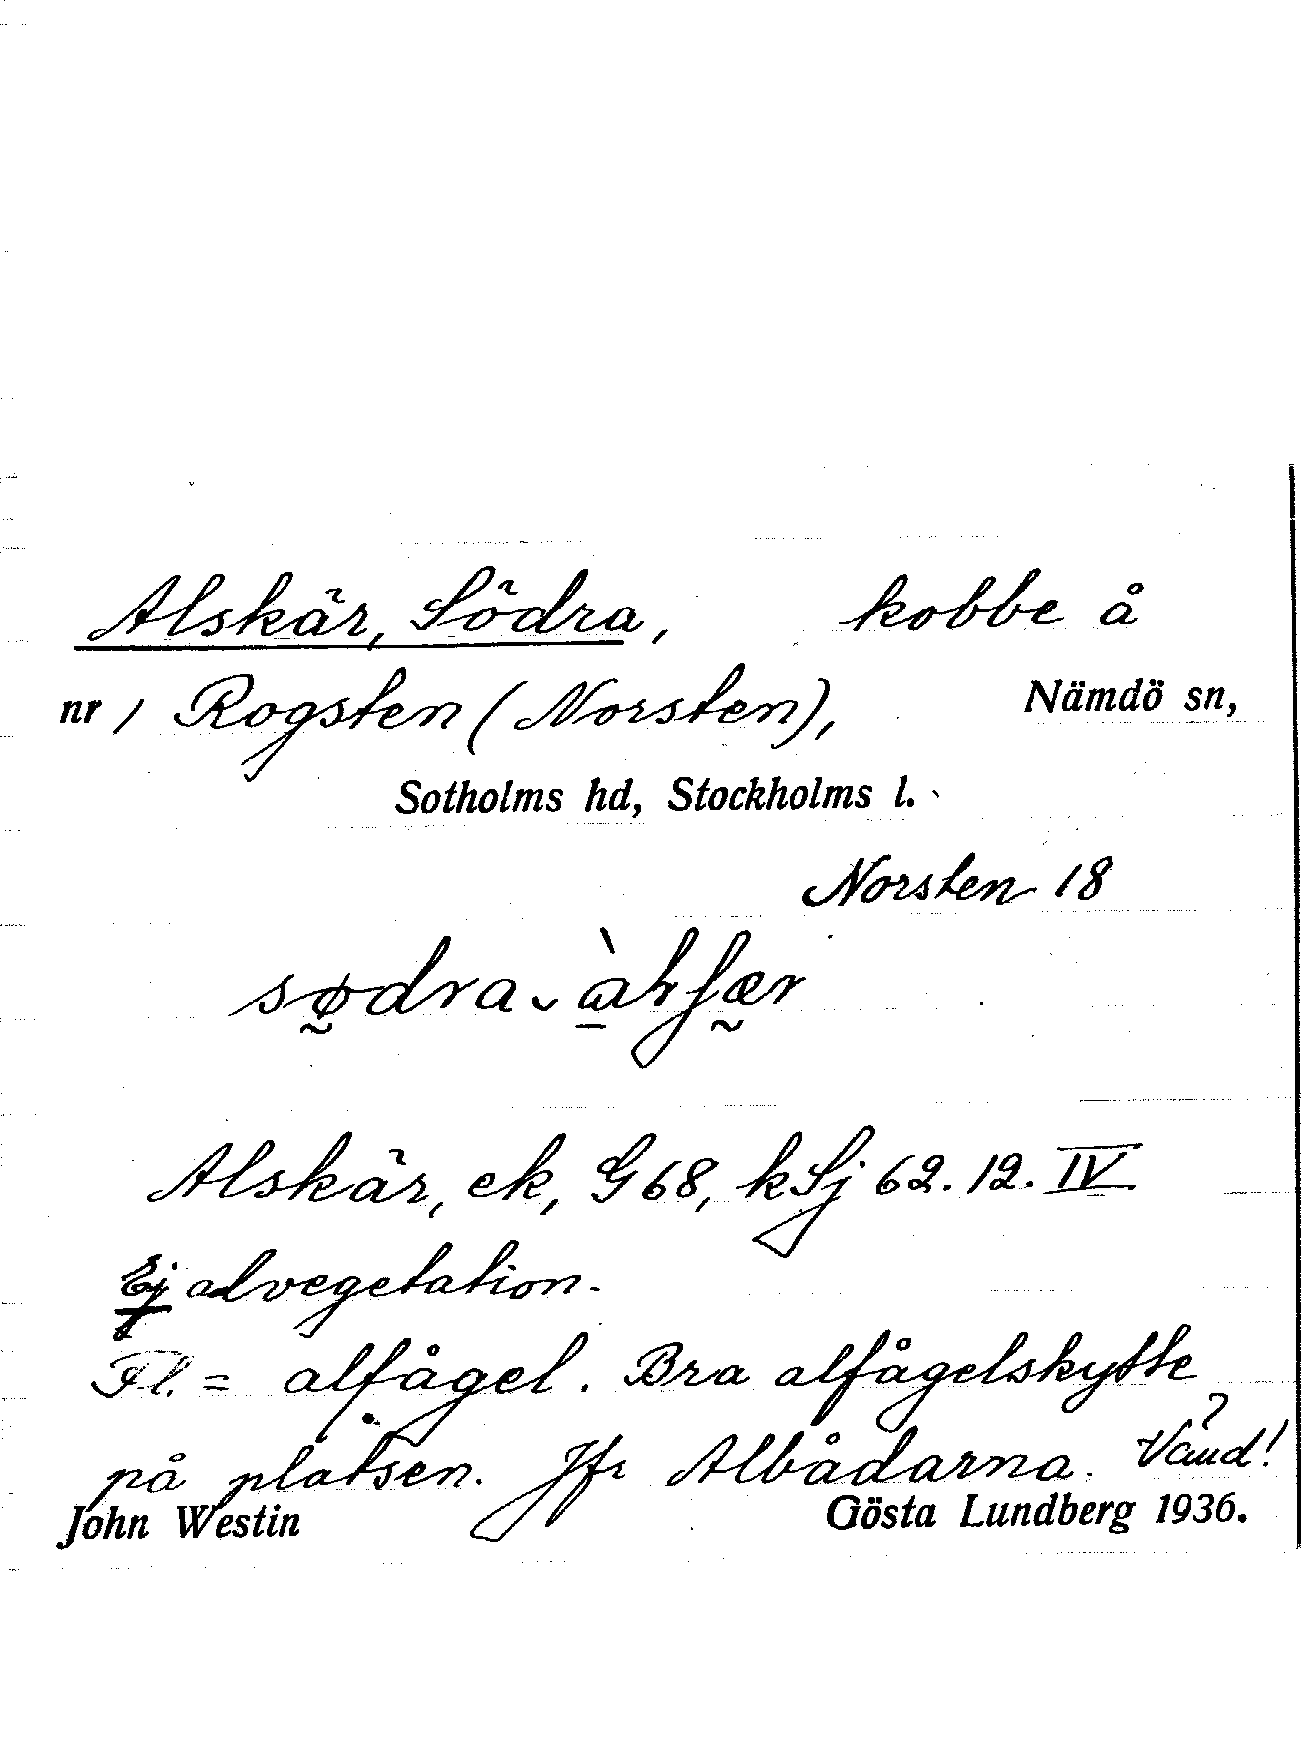 Alskär, Södra, kobbe å
nr 1 Rogsten (Norsten), Nämdö sn,
Sotholms hd, Stockholms l.
Norsten 18
Alskär, ek, G 68, kSj 62. 12. IV
Ej alvegetation.
Fl. = alfågel. Bra alfågelskytte
på platsen. Jfr Albådarna. Vänd!
John Westin Gösta Lundberg 1936.